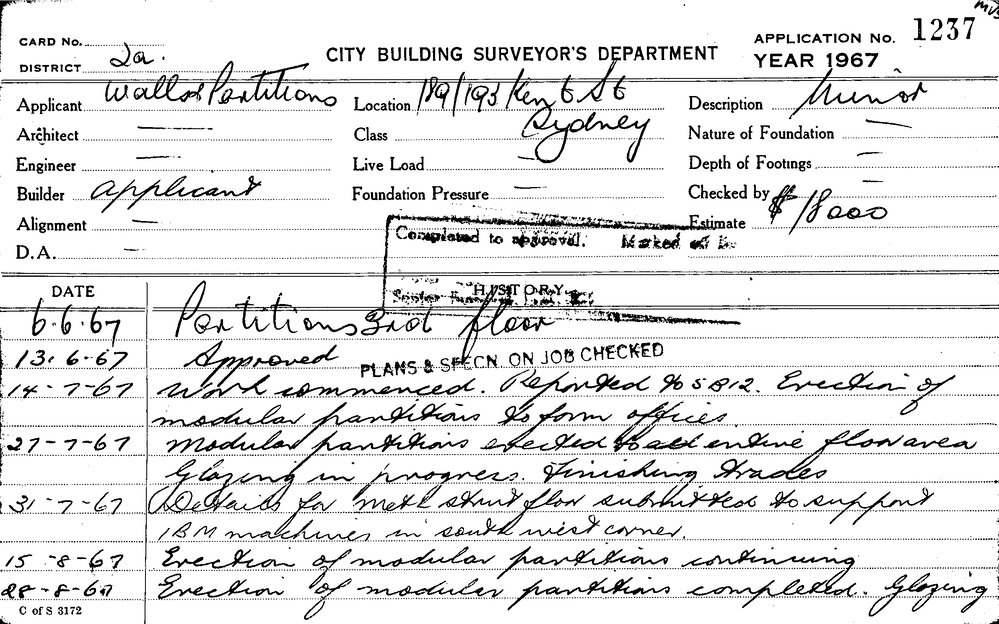 mvs
CARD No.
DISTRICT 2a.
CITY BUILDING SURVEYOR'S DEPARTMENT
APPLICATION No. 1237
YEAR 1967
Applicant Walls & Partitions
Location 189/193 Kent St
Sydney
Description Minor
Architect —
Class
Nature of Foundation —
Engineer —
Live Load —
Depth of Footings —
Builder applicant
Foundation Pressure —
Checked by —
Alignment —
Estimate $18000
D.A. —
Completed to approval. Marked off
DATE
HISTORY
6.6.67 Partitions 3rd floor
13.6.67 Approved
PLANS & SPECN. ON JOB CHECKED
14-7-67 Work commenced. Reported to SB12. Erection of
modular partitions to form offices
27-7-67 Modular partitions erected to entire floor area
Glazing in progress. Finishing trades
31-7-67 Details for strut floor submitted to support
IBM machines in south west corner.
15-8-67 Erection of modular partitions continuing
28-8-67 Erection of modular partitions completed. Glazing
C of S 3172